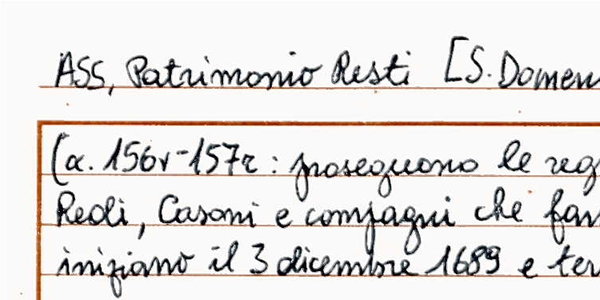 ASS, Patrimonio Resti [S. Domen
(α. 156v-157r: proseguono le reg
Reoli, Casoni e compagni che fan
iniziano il 3 dicembre 1689 e ter